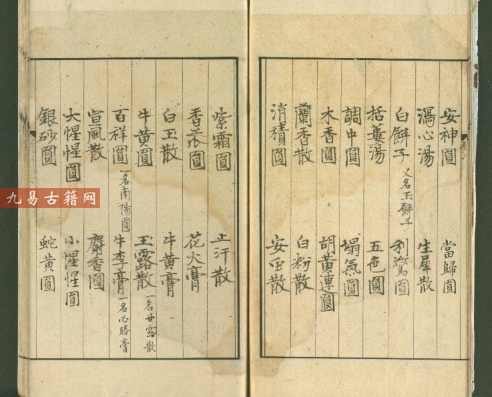 安神圓　當歸圓
瀉心湯　生犀散
白餅子 又名玉餅子　利驚圓
括蔞湯　五色圓
調中圓　塌氣圓
木香圓　胡黃連圓
蘭香散　白粉散
消積圓　安虫散
紫霜圓　止汗散
香瓜圓　花火膏
白玉散　牛黃膏
牛黃圓　玉露散 一名甘露散
百祥圓 一名南陽圓　牛李膏 一名必勝膏
宣風散　麝香圓
大惺惺圓　小惺惺圓
銀砂圓　蛇黃圓
九易古籍网